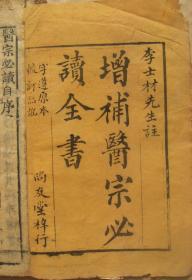 李士材先生註
增補醫宗必
讀全書
字遵原本
尚友堂梓行
醫宗必讀自序